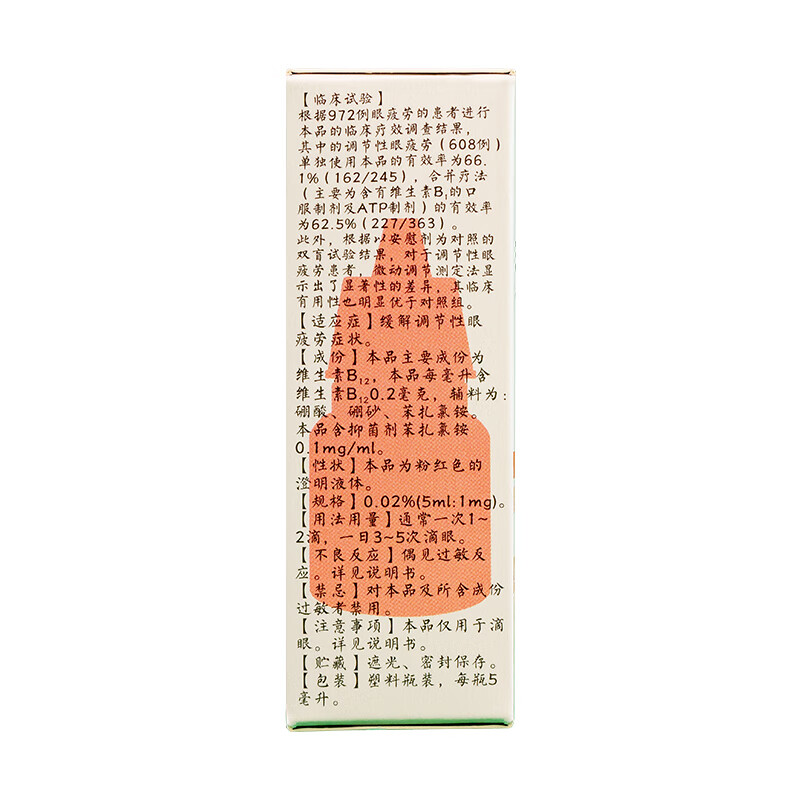 【临床试验】
根据972例眼疲劳的患者进行
本品的临床疗效调查结果，
其中的调节性眼疲劳（608例）
单独使用本品的有效率为66.
1%（162/245），合并疗法
（主要为含有维生素B₁的口
服制剂及ATP制剂）的有效率
为62.5%（227/363）。
此外，根据以安慰剂为对照的
双盲试验结果，对于调节性眼
疲劳患者，微动调节测定法显
示出了显著性的差异，其临床
有用性也明显优于对照组。
【适应症】缓解调节性眼
疲劳症状。
【成份】本品主要成份为
维生素B₁₂，本品每毫升含
维生素B₁₂0.2毫克，辅料为：
硼酸、硼砂、苯扎氯铵。
本品含抑菌剂苯扎氯铵
0.1mg/ml。
【性状】本品为粉红色的
澄明液体。
【规格】0.02%(5ml:1mg)。
【用法用量】通常一次1~
2滴，一日3~5次滴眼。
【不良反应】偶见过敏反
应。详见说明书。
【禁忌】对本品及所含成份
过敏者禁用。
【注意事项】本品仅用于滴
眼。详见说明书。
【贮藏】遮光、密封保存。
【包装】塑料瓶装，每瓶5
毫升。